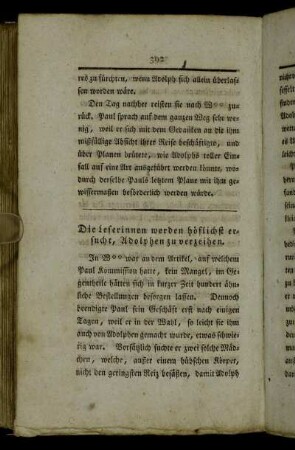 392
res zu fürchten, wenn Adolph sich allein überlas-
sen worden wäre.
Den Tag nachher reisten sie nach W°° zu-
rück. Paul sprach auf dem ganzen Weg sehr we-
nig, weil er sich mit dem Gedanken an die ihm
mißfällige Absicht ihrer Reise beschäftigte, und
über Planen brütete, wie Adolphs toller Ein-
fall auf eine Art ausgeführt werden könnte, wo-
durch derselbe Pauls letztem Plane mit ihm ge-
wissermaßen beförderlich werden würde.
Die Leserinnen werden höflichst er-
sucht, Adolphen zu verzeihen.
In W°° war an dem Artikel, auf welchem
Paul Kommission hatte, kein Mangel, im Ge-
gentheile hätten sich in kurzer Zeit hundert ähn-
liche Bestellungen besorgen lassen. Dennoch
beendigte Paul sein Geschäft erst nach einigen
Tagen, weil er in der Wahl, so leicht sie ihm
auch von Adolphen gemacht wurde, etwas schwie-
rig war. Vorsätzlich suchte er zwei solche Mäd-
chen, welche, außer einem hübschen Körper,
nicht den geringsten Reiz besäßen, damit Adolph